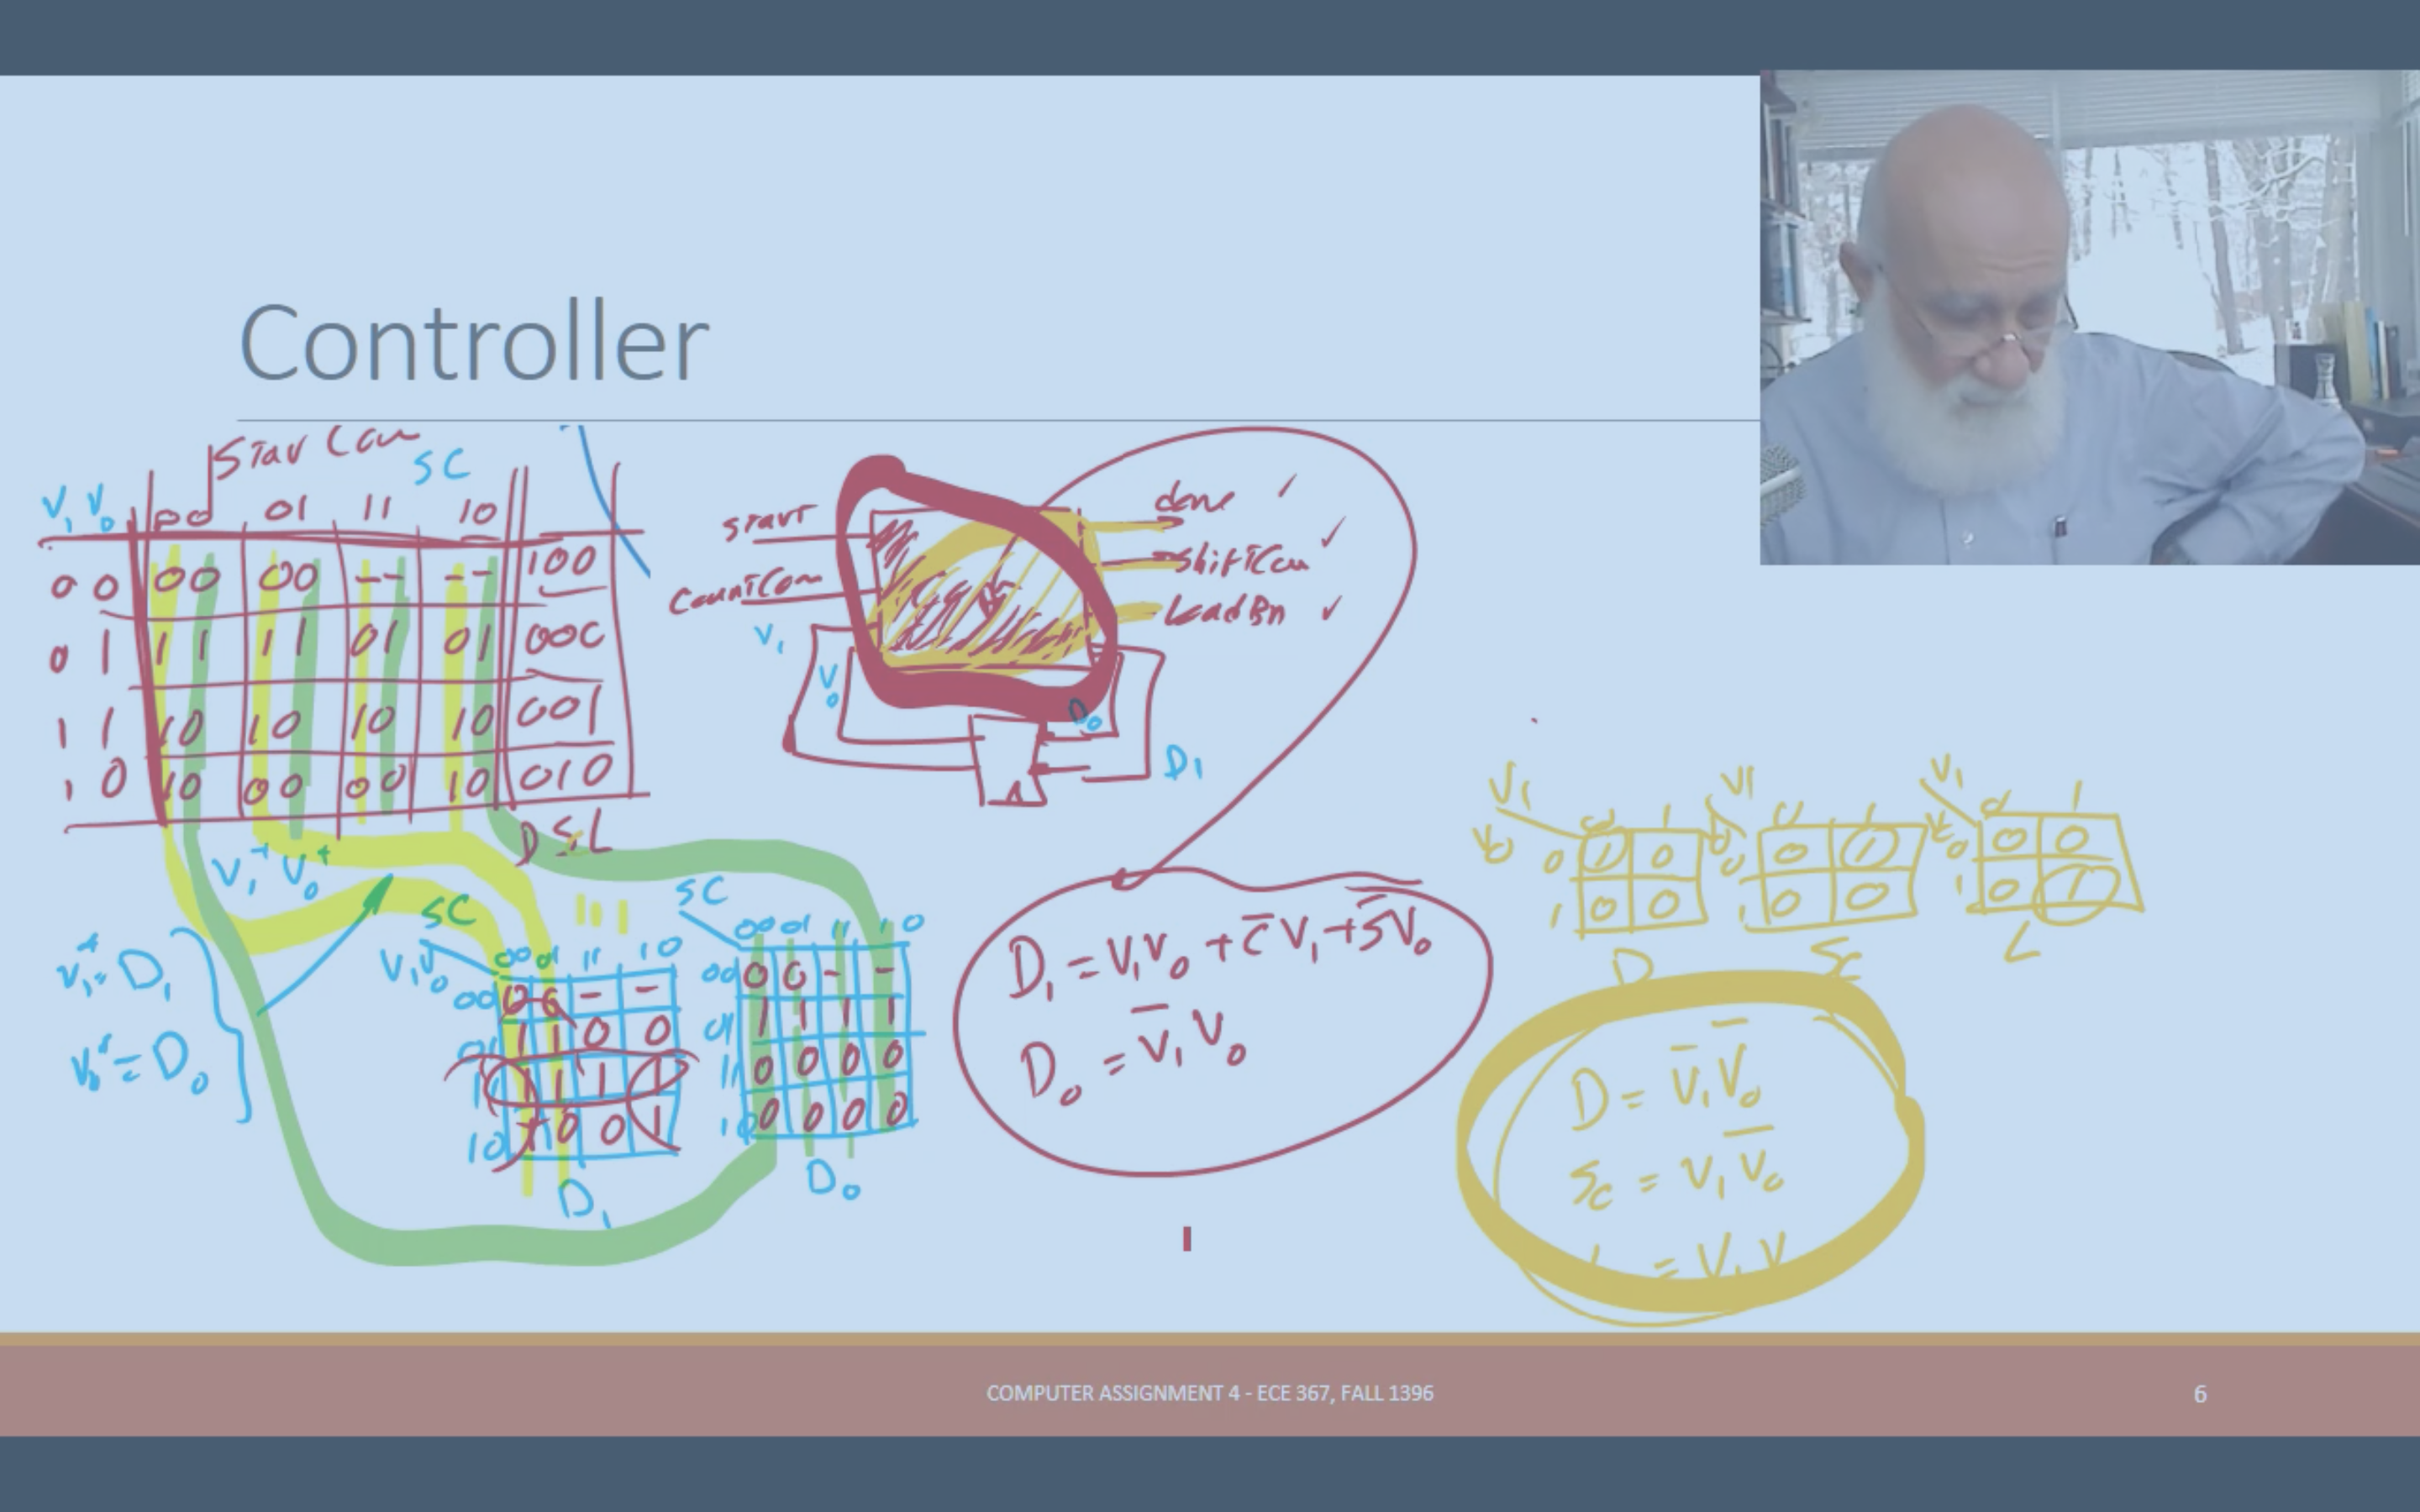 Controller
Start Con
SC
V1 V0 00 01 11 10
00 00 00 -- -- 100
01 11 11 01 01 000
11 10 10 10 10 001
10 10 00 00 10 010
D S L
V1+ V0+
V1+ = D1
V0+ = D0
SC
V1V0 00 01 11 10
00 0 0 - -
01 1 1 0 0
11 1 1 1 1
10 1 0 0 1
D1
SC
00 01 11 10
00 0 0 - -
01 1 1 1 1
11 0 0 0 0
10 0 0 0 0
D0
start
CountCon
V1
V0
done ✓
ShiftCon ✓
LoadBn ✓
D0
D1
D1 = V1V0 + C̅V1 + S̅V0
D0 = V̅1V0
V1
V0 0 1
0 1 0
1 0 0
D
V1
V0 0 1
0 0 1
1 0 0
Sc
V1
V0 0 1
0 0 0
1 0 1
L
D = V̅1V̅0
Sc = V1V̅0
= V1V
COMPUTER ASSIGNMENT 4 - ECE 367, FALL 1396
6